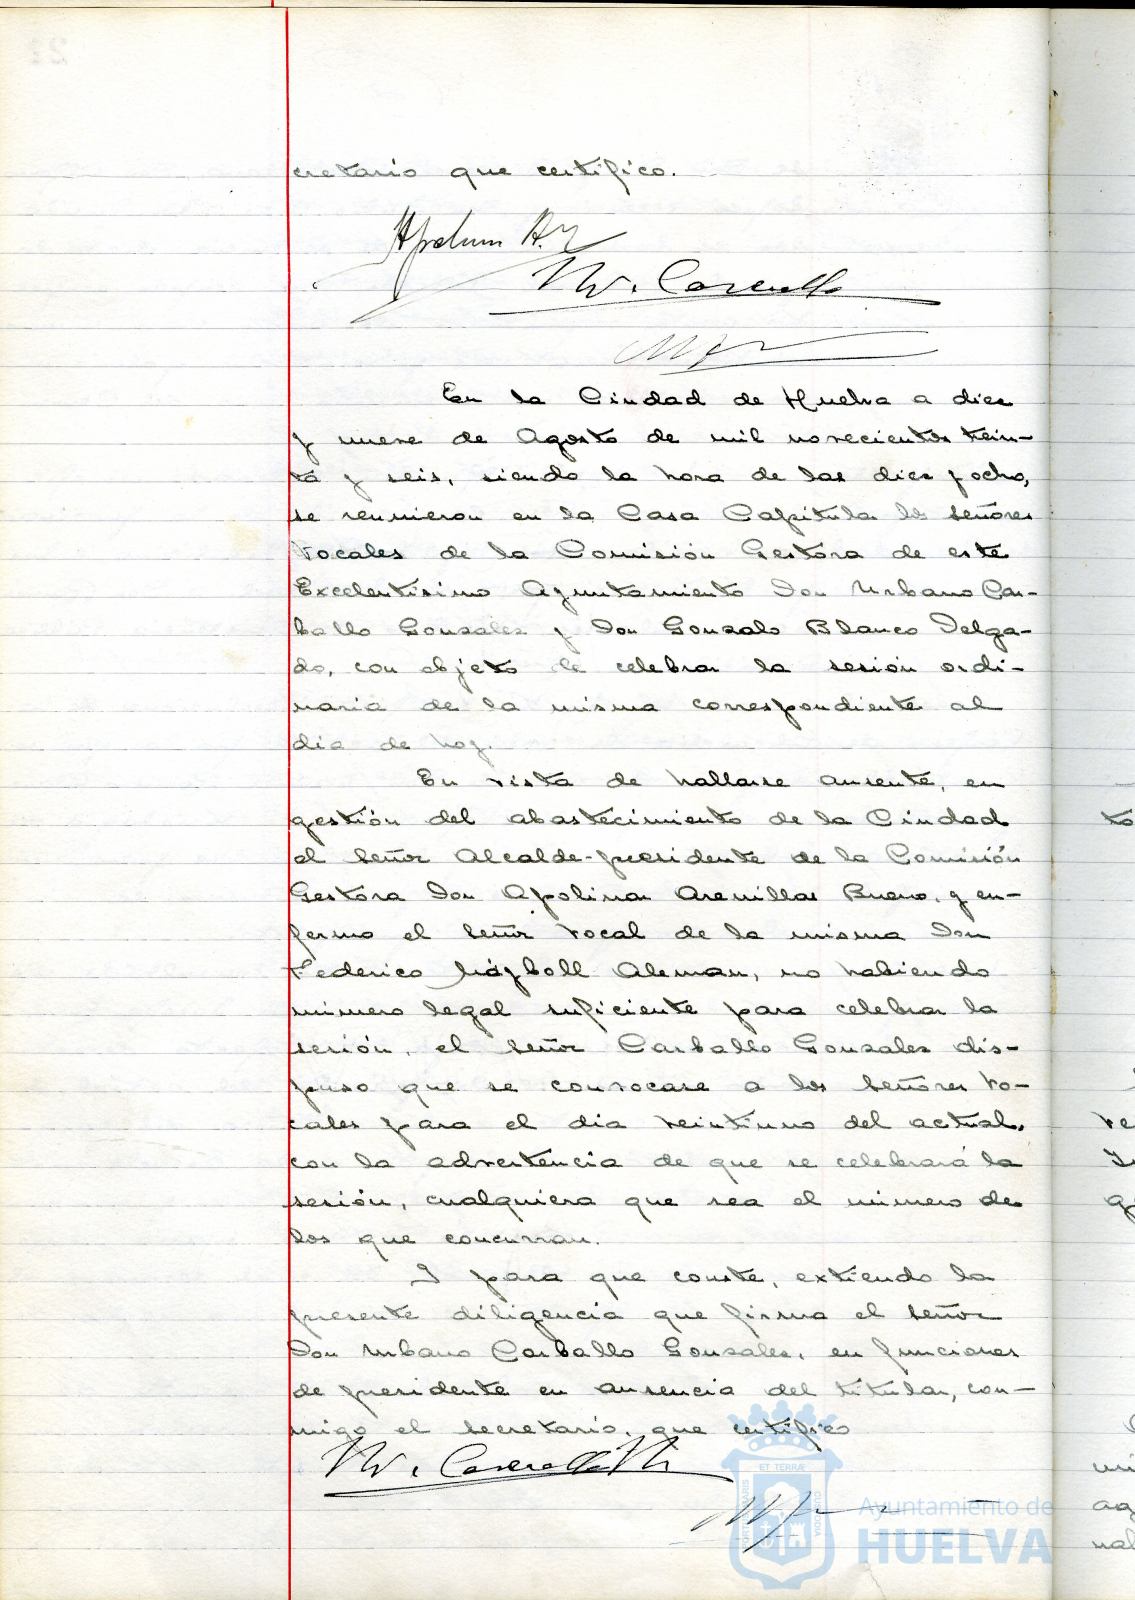 cretario que certifico.
En la Ciudad de Huelva a diez
y nueve de Agosto de mil novecientos trein-
ta y seis, siendo la hora de las diez y ocho,
se reunieron en la Casa Capitular los señores
Vocales de la Comisión Gestora de este
Excelentísimo Ayuntamiento Don Urbano Car-
ballo Gonzales y Don Gonzalo Blanco Delga-
do, con objeto de celebrar la sesión ordi-
naria de la misma correspondiente al
día de hoy.
En vista de hallarse ausente, en
gestión del abastecimiento de la Ciudad
el señor Alcalde-presidente de la Comisión
Gestora Don Apolinar Arenillas Bueno, y en-
fermo el señor vocal de la misma Don
Federico Aleman, no habiendo
número legal suficiente para celebrar la
sesión, el señor Carballo Gonzales dis-
puso que se convocase a los señores Vo-
cales para el día veintiuno del actual,
con la advertencia de que se celebrará la
sesión, cualquiera que sea el número de
los que concurran.
Y para que conste, extiendo la
presente diligencia que firma el señor
Don Urbano Carballo Gonzales, en funciones
de presidente en ausencia del titular, con-
migo el secretario, que certifico
Ayuntamiento de
HUELVA